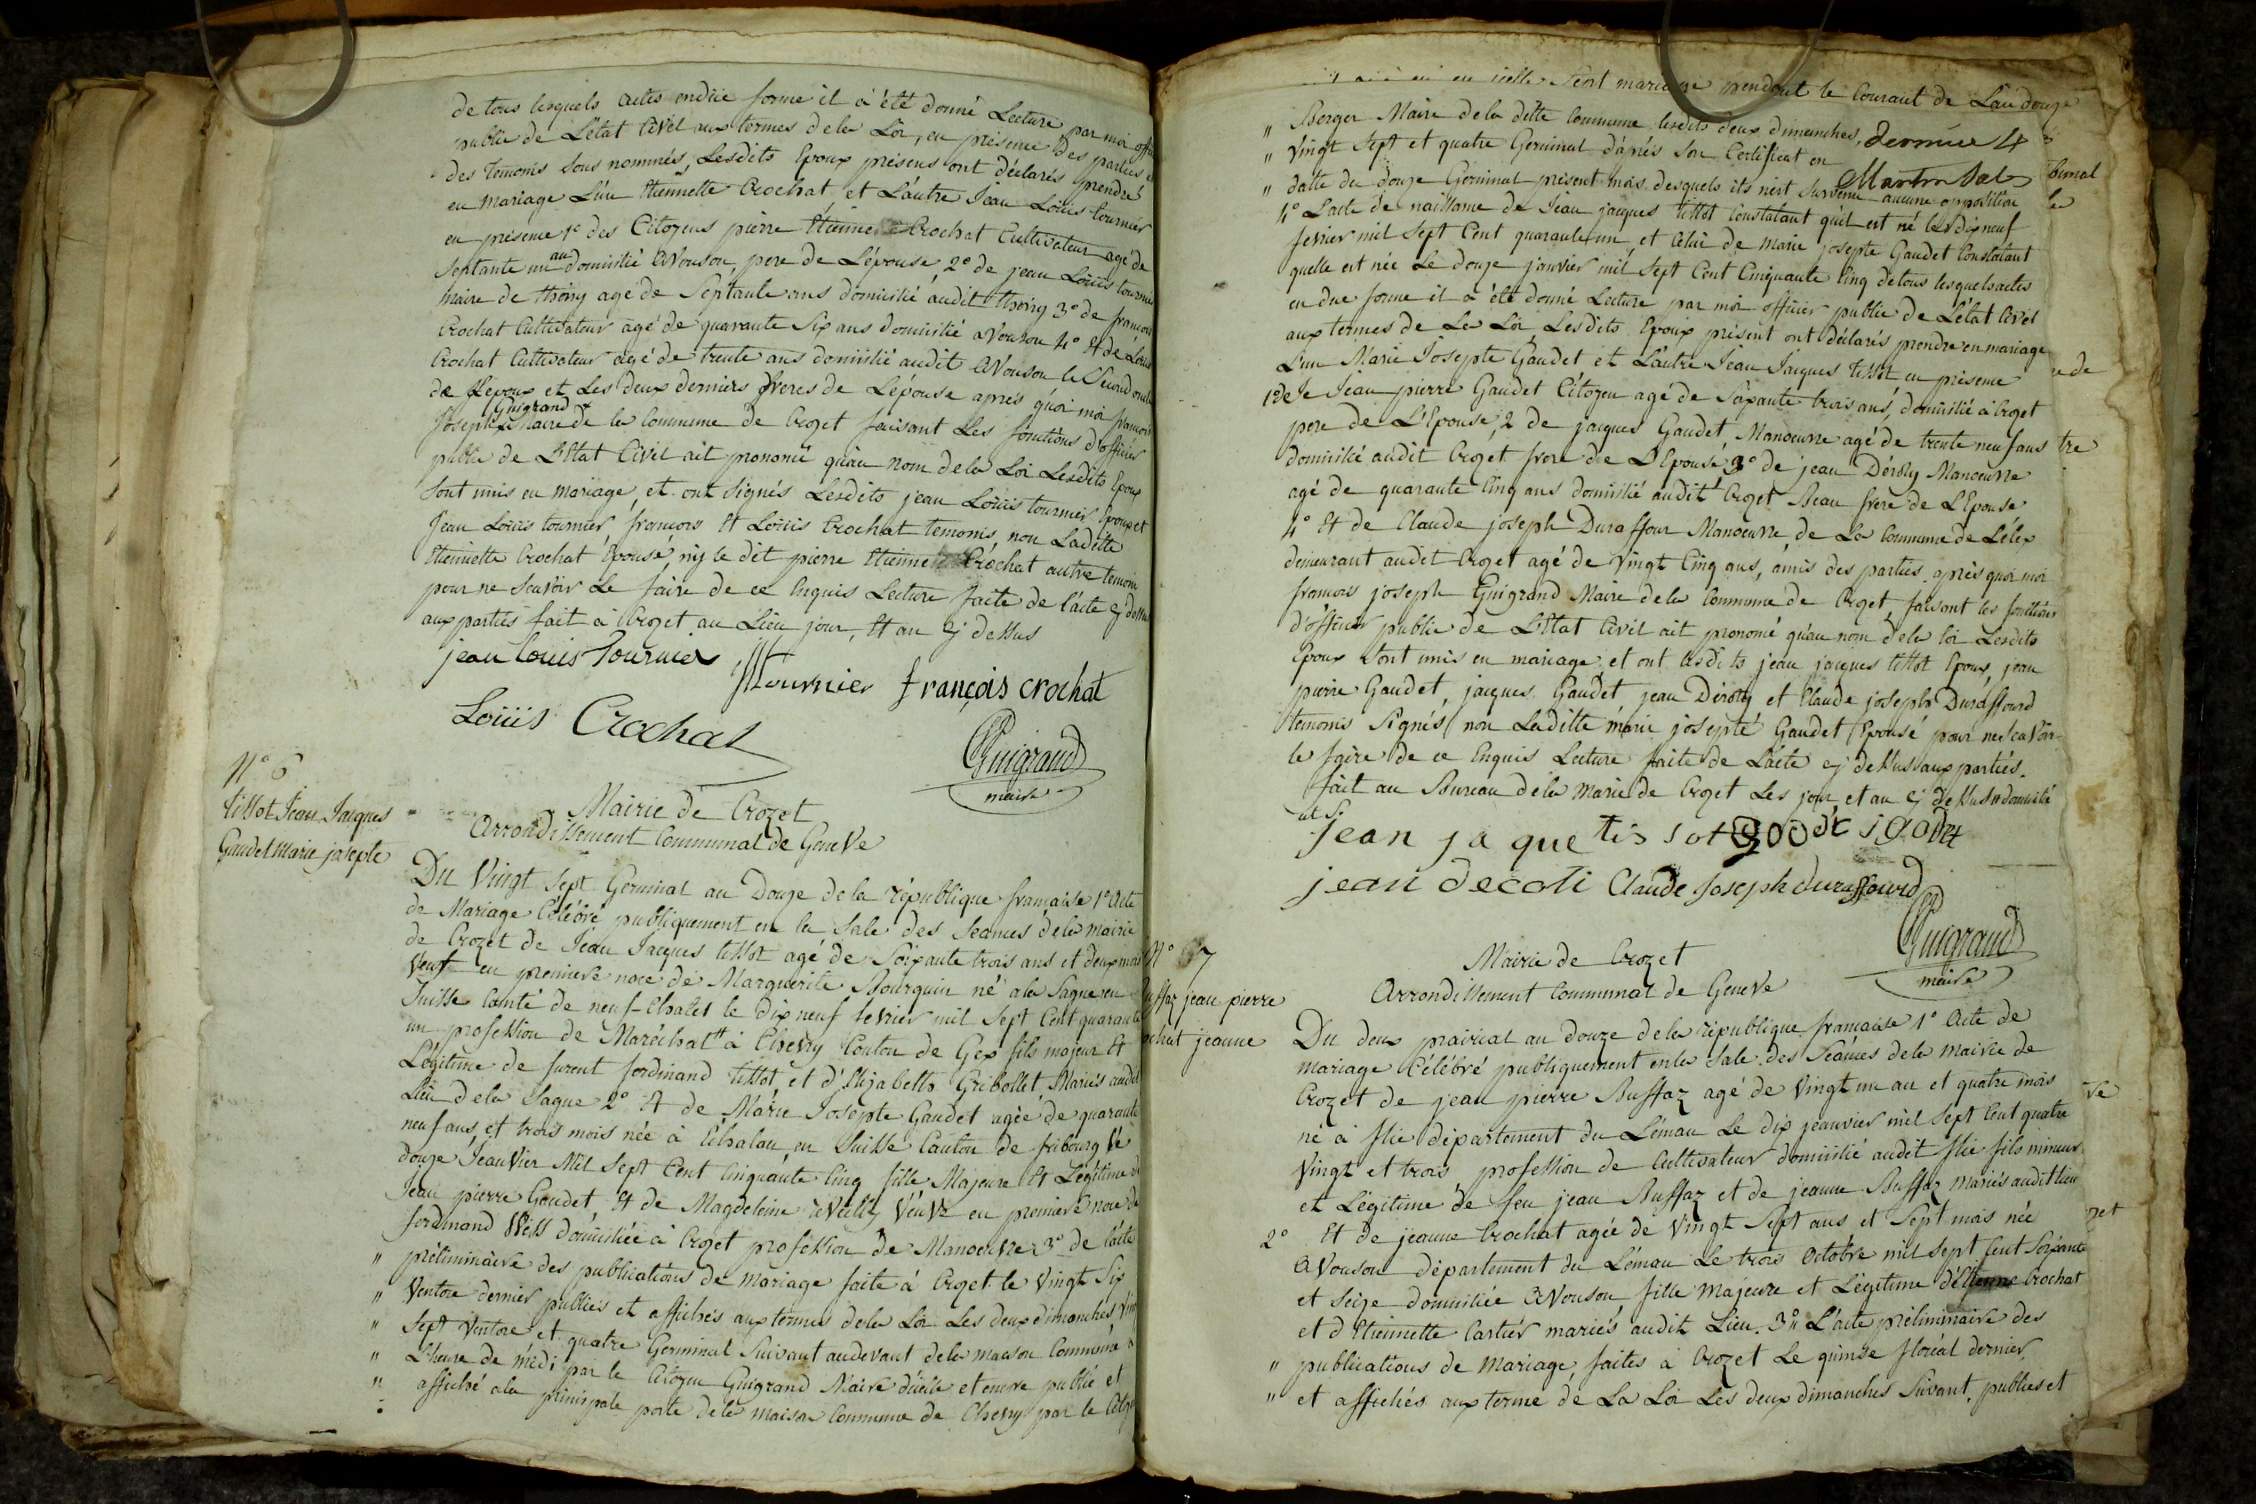 de tous lesquels actes en due forme il a été donné Lecture par moi offi
public de L'état Civil aux termes de la Loi, en présence des parties et
des temoins sous nommés, Lesdits Epoux présens ont déclarés prendre
en mariage L'un Etiennette Crochat et L'autre Jean Louis tournier
en présence 1° des Citoyens pierre Etienne Crochat Cultivateur agé de
Septante un an domicilié avouson, pere de L'épouse, 2° de jean Louis tournier
maire de thoiry agé de Septante ans domicilié audit thoiry 3° de francois
Crochat Cultivateur agé de quarante Six ans domicilié avouson 4° Et de Louis
Crochat Cultivateur agé de trente ans domicilié audit avouson le Second oncle
de L'epoux et Les deux derniers freres de L'épouse après quoi moi francois
Joseph Guigrand Maire de la Commune de Crozet faisant Les fonctions d'officier
public de L'Etat Civil ait prononcé qu'au nom de la Loi Lesdits Epoux
Sont unis en mariage, et ont signés Lesdits jean Louis tournier Epoux et
Jean Louis tournier, francois Et Louis Crochat temoins, non Ladite
Etiennette Crochat Epouse ny le dit pierre Etienne Crochat autre temoin
pour ne Scavoir Le faire de ce Enquis Lecture faite de l'acte cy dessus
aux parties fait à Crozet au Lieu jour, Et an cy dessus
jean louis Tournier Tournier françois crochat
Louis Crochat
Guigrand
maire
N° 6
tissot Jean Jacques
Gaudet Marie josephe
Mairie de Crozet
Arrondissement Communal de Geneve
Du Vingt Sept Germinal an Douze de la république francaise 1° Acte
de Mariage Célébré publiquement en la Sale des Seances de la mairie
de Crozet de Jean Jacques tissot agé de Soixante trois ans et deux mois
Veuf en premiere noce de Marguerite Bourquin né a la Sagne en
Suisse Comté de neuf-Chatel le dix neuf fevrier mil Sept Cent quarante
un profession de Maréchal à Chevry Canton de Gex fils majeur Et
Légitime de furent ferdinand tissot et d'Elizabeth Gribollet Mariés audit
Lieu de la Sagne 2° Et de Marie Josepte Gaudet agée de quarante
neuf ans et trois mois née à en Suisse Canton de fribourg le
douze Jeanvier Mil Sept Cent Cinquante Cinq fille Majeure Et Légitime de
Jean pierre Gaudet, Et de Magdeleine Veuve en premiere noce de
ferdinand domiciliée à Crozet profession de Manoeuvre 3° de l'acte
" préliminaire des publications de mariage faite à Crozet le Vingt Six
" Ventose dernier publiés et affichés aux termes de la Loi Les deux dimanches Vingt
" Sept Ventose et quatre Germinal Suivant audevant de la maison Commune à
" L'heure de midi par le Citoyen Guigrand Maire d'icelle et encore publié et
" affiché a la principale porte de la maison Commune de Chevry par le Citoyen
en icelle Sont mariage pendant le Courant de L'an douze
" Berger Maire de la dite Commune lesdits deux dimanches, dernier
" Vingt Sept et quatre Germinal d'après Son Certificat en
" datte du douze Germinal présent mois desquels il n'est Survenu aucune opposition
4° L'acte de naissance de Jean jacques tissot Constatant qu'il est né le dix neuf
fevrier mil Sept Cent quarante un, et Celui de marie josepte Gaudet Constatant
quelle est née Le douze janvier mil Sept Cent Cinquante Cinq de tous lesquels actes
en due forme il a été donné Lecture par moi officier public de L'état Civil
aux termes de La Loi Lesdits Epoux présent ont déclarés prendre en mariage
L'un Marie Josepte Gaudet et L'autre Jean Jacques tissot en présence
1° de Jean pierre Gaudet Citoyen agé de Sapante trois ans, domicilié à Crozet
pere de L'Epouse, 2 de jacques Gaudet, Manoeuvre agé de trente neuf ans
domicilié audit Crozet frere de L'Epouse 3° de jean Déroly Manoeuvre
agé de quarante Cinq ans domicilié audit Crozet Beau frere de L'Epouse
4° Et de Claude joseph Duraffour Manoeuvre de La Commune de Lélex
demeurant audit Crozet agé de Vingt Cinq ans, amis des parties, après quoi moi
francois joseph Guigrand Maire de la Commune de Crozet, faisant les fonctions
d'officier public de L'Etat Civil ait prononcé qu'au nom de la loi Lesdits
Epoux Sont unis en mariage, et ont lesdits jean jacques tissot Epoux, jean
pierre Gaudet, jacques Gaudet jean Déroly et Claude joseph Duraffourd
temoins Signés, non Ladite marie josepte Gaudet Epouse pour ne Scavoir
le faire de ce Enquis Lecture faite de L'acte cy dessus aux parties.
fait au Bureau de la Mairie de Crozet Les jour et an cy dessus
jean jaque tissot
jean decoli Claude Joseph duraffourd
Guigrand
maire
N° 7
Buffaz jean pierre
Crochat jeanne
Mairie de Crozet
Arrondissement Communal de Geneve
Du deux prairial an douze de la république francaise 1° Acte de
mariage Célébré publiquement en la Sale des Séances de la Mairie de
Crozet de jean pierre Buffaz agé de Vingt un an et quatre mois
né à Flie département du Léman Le dix jeanvier mil Sept Cent quatre
Vingt et trois profession de Cultivateur domicilié audit Flie fils mineur
et Légitime de feu jean Buffaz et de jeanne Buffaz mariés audit lieu
2° Et de jeanne Crochat agée de Vingt Sept ans et Sept mois née
avouson département du Léman Le trois Octobre mil Sept Cent Soixante
et Seize domiciliée avouson fille Majeure et Légitime d'Etienne Crochat
et d'Etiennette Cartier mariés audit Lieu. 3° L'acte préliminaire des
" publications de Mariage, faites à Crozet Le quinze floréal dernier
" et affichés aux terme de La Loi Les deux dimanches Suivant, publiés et